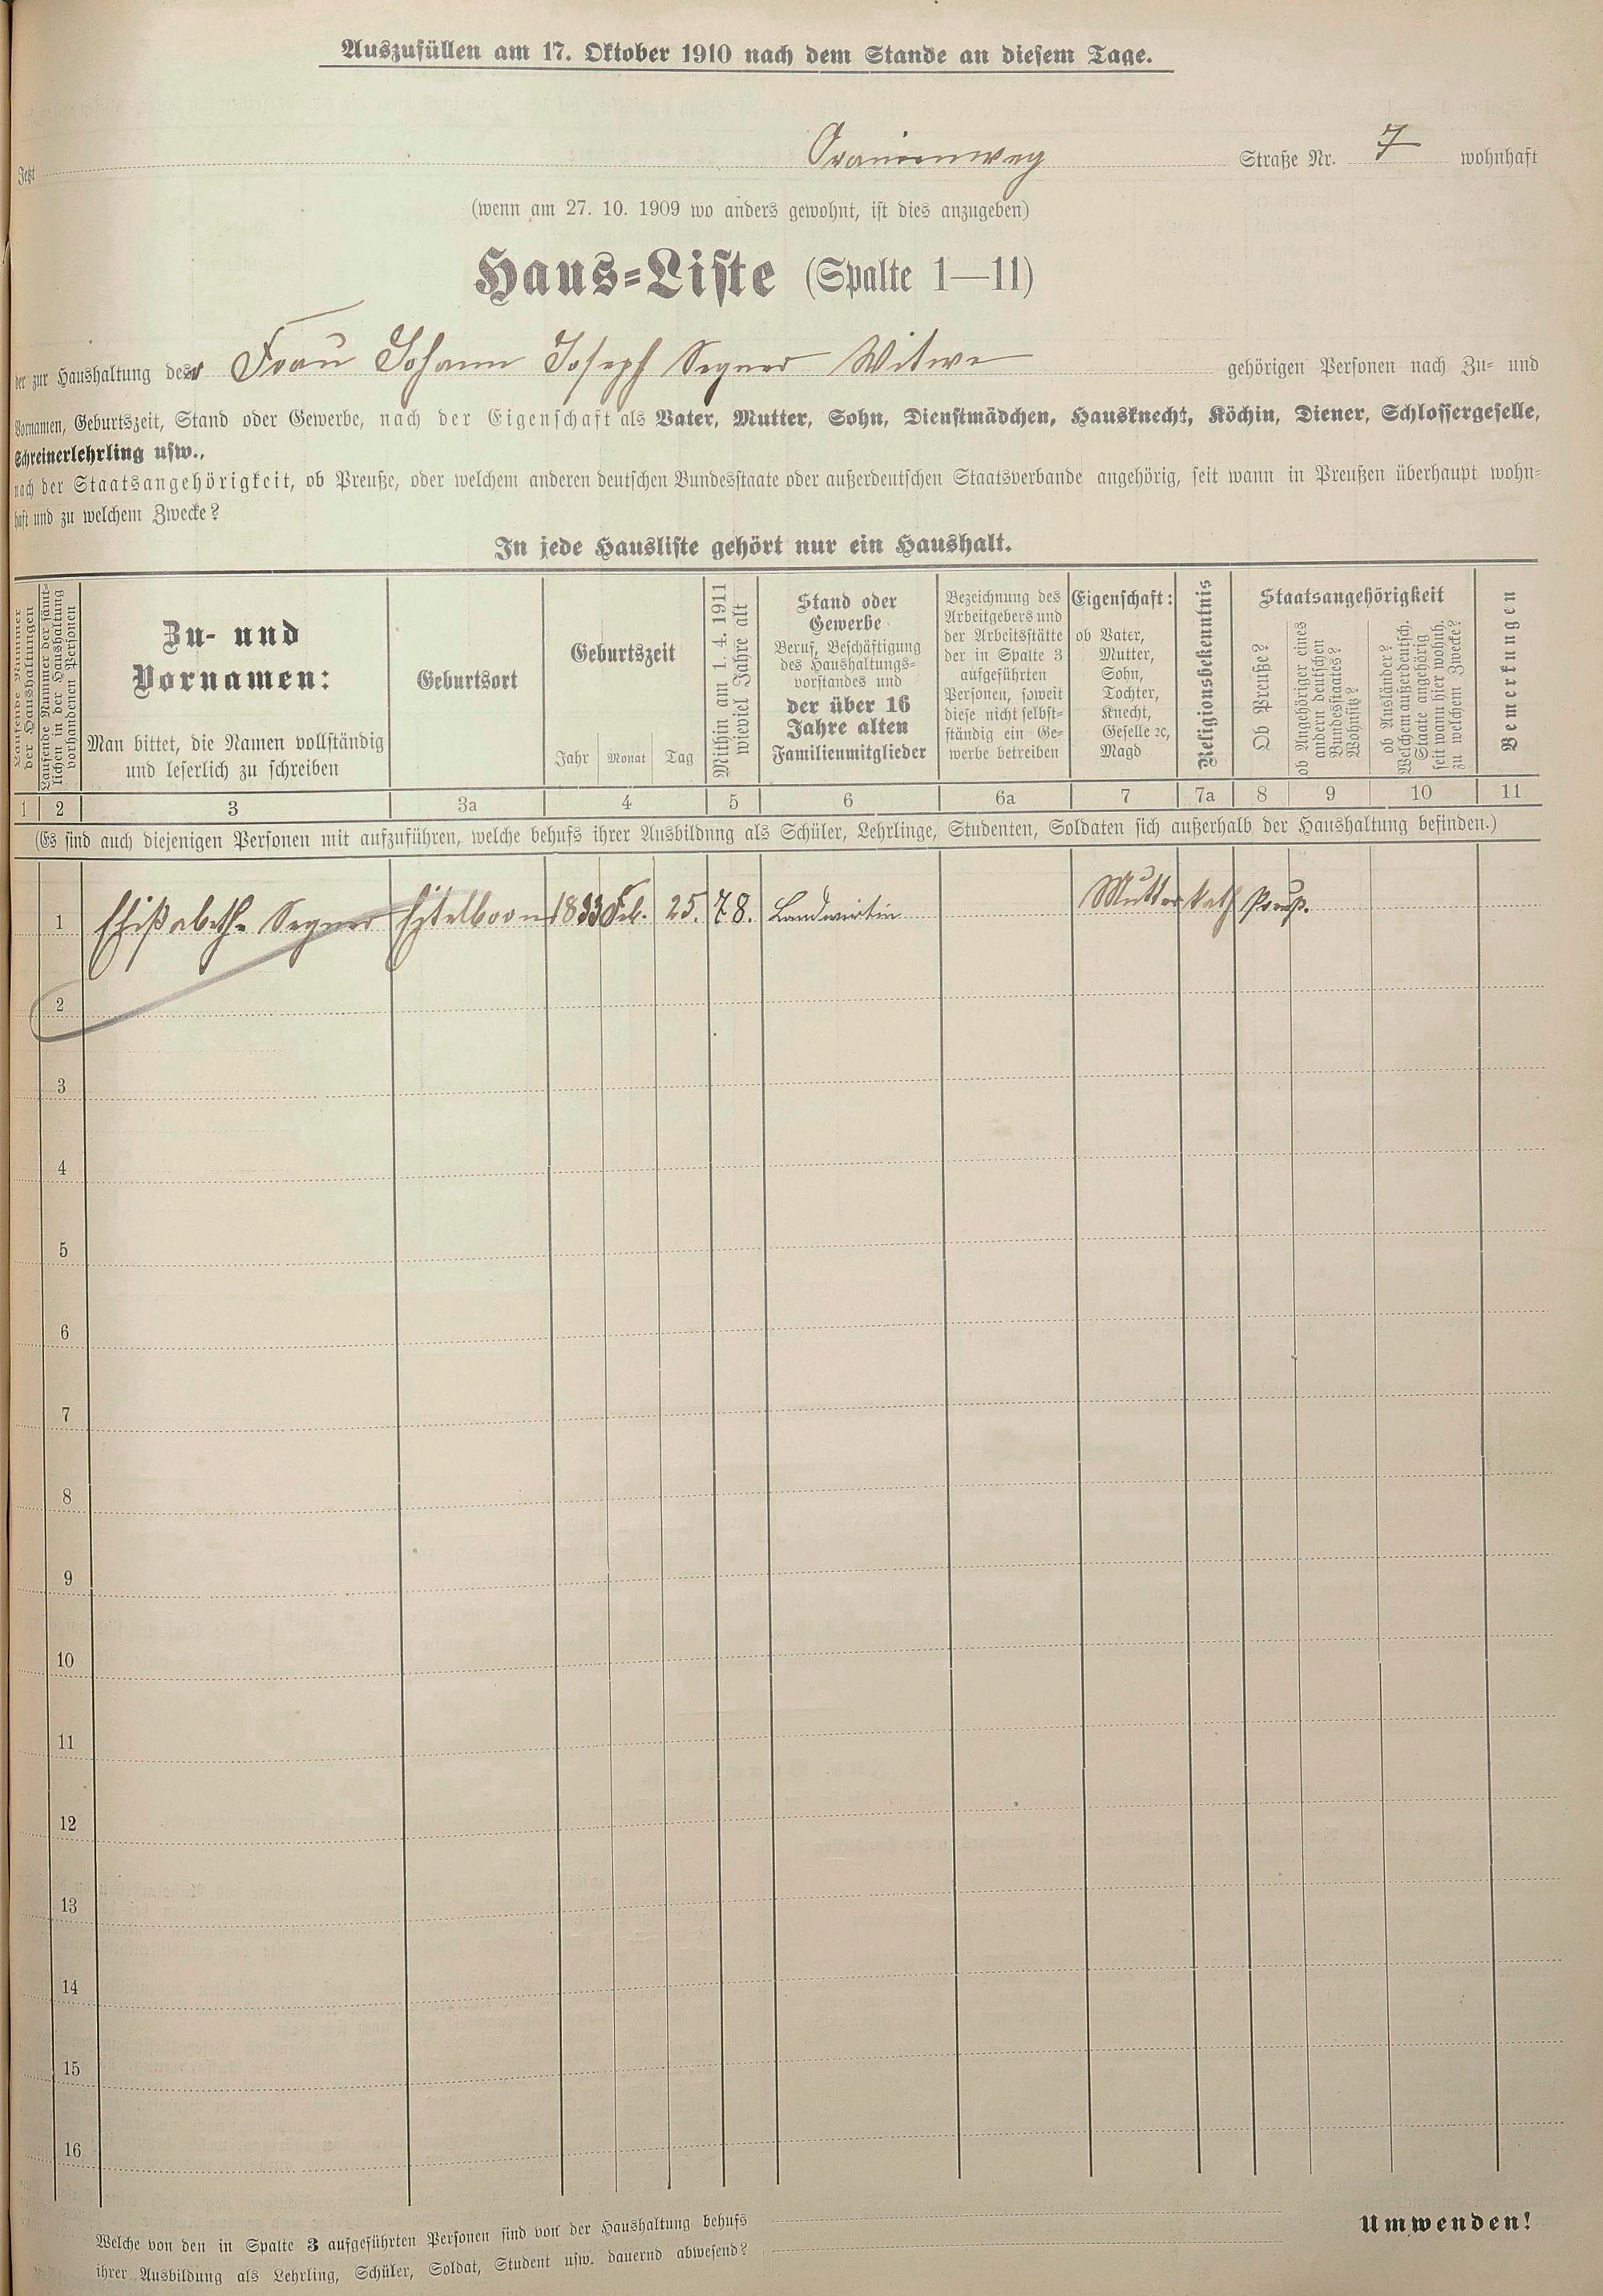 Auszufüllen am 17. Oktober 1910 nach dem Stande an diesem Tage.
Jetzt Oranienweg Straße Nr. 7 wohnhaft
(wenn am 27. 10. 1909 wo anders gewohnt, ist dies anzugeben)
Haus-Liste (Spalte 1—11)
der zur Haushaltung der Frau Johann Joseph Segner Witwe gehörigen Personen nach Zu- und
Vornamen, Geburtszeit, Stand oder Gewerbe, nach der Eigenschaft als Vater, Mutter, Sohn, Dienstmädchen, Hausknecht, Köchin, Diener, Schlossergeselle,
Schreinerlehrling usw.,
nach der Staatsangehörigkeit, ob Preuße, oder welchem anderen deutschen Bundesstaate oder außerdeutschen Staatsverbande angehörig, seit wann in Preußen überhaupt wohn-
haft und zu welchem Zwecke?
In jede Hausliste gehört nur ein Haushalt.
Laufende Nummer
der Haushaltungen
Laufende Nummer der sämt-
lichen in der Haushaltung
vorhandenen Personen
Zu- und
Vornamen:
Man bittet, die Namen vollständig
und leserlich zu schreiben
Geburtsort
Geburtszeit
Jahr Monat Tag
Mithin am 1. 4. 1911
wieviel Jahre alt
Stand oder
Gewerbe
Beruf, Beschäftigung
des Haushaltungs-
vorstandes und
der über 16
Jahre alten
Familienmitglieder
Bezeichnung des
Arbeitgebers und
der Arbeitsstätte
der in Spalte 3
aufgeführten
Personen, soweit
diese nicht selbst-
ständig ein Ge-
werbe betreiben
Eigenschaft:
ob Vater,
Mutter,
Sohn,
Tochter,
Knecht,
Geselle ꝛc,
Magd
Religionsbekenntnis
Staatsangehörigkeit
Ob Preuße?
ob Angehöriger eines
andern deutschen
Bundesstaates?
Wohnsitz?
ob Ausländer?
Welchem außerdeutsch.
Staate angehörig
seit wann hier wohnh.
zu welchem Zwecke?
Bemerkungen
1 2 3 3a 4 5 6 6a 7 7a 8 9 10 11
(Es sind auch diejenigen Personen mit aufzuführen, welche behufs ihrer Ausbildung als Schüler, Lehrlinge, Studenten, Soldaten sich außerhalb der Haushaltung befinden.)
1 Segner Eitelborn 1833 Feb. 25. 78. Landwirtin Mutter kath Preuß.
2
3
4
5
6
7
8
9
10
11
12
13
14
15
16
Welche von den in Spalte 3 aufgeführten Personen sind von der Haushaltung behufs
ihrer Ausbildung als Lehrling, Schüler, Soldat, Student usw. dauernd abwesend?
Umwenden!